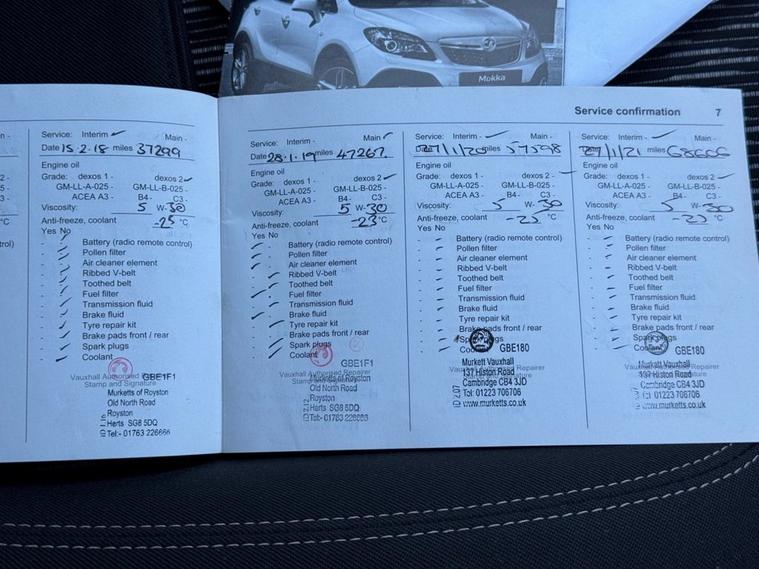 Mokka
Service confirmation 7
Service: Interim - Main -
Date 15.2.18 miles 37299
Engine oil
Grade: dexos 1 - dexos 2 -
GM-LL-A-025 - GM-LL-B-025 -
ACEA A3 - B4 - C3 -
Viscosity: 5 W- 30
Anti-freeze, coolant -25 °C
Yes No
- Battery (radio remote control)
- Pollen filter
- Air cleaner element
- Ribbed V-belt
- Toothed belt
- Fuel filter
- Transmission fluid
- Brake fluid
- Tyre repair kit
- Brake pads front / rear
- Spark plugs
- Coolant
GBE1F1
Vauxhall Authorised Repairer
Stamp and Signature
Murketts of Royston
Old North Road
Royston
Herts SG8 5DQ
Tel:- 01763 226666
Service: Interim - Main
Date 28.1.19 miles 47267.
Engine oil
Grade: dexos 1 - dexos 2
GM-LL-A-025 - GM-LL-B-025 -
ACEA A3 - B4 - C3 -
Viscosity: 5 W- 30
Anti-freeze, coolant -23 °C
Yes No
- Battery (radio remote control)
- Pollen filter
- Air cleaner element
- Ribbed V-belt
- Toothed belt
- Fuel filter
- Transmission fluid
- Brake fluid
- Tyre repair kit
- Brake pads front / rear
- Spark plugs
- Coolant
GBE1F1
Vauxhall Authorised Repairer
Murketts of Royston
Old North Road
Royston
Herts SG8 5DQ
Tel:- 01763 226666
Service: Interim - Main -
27/1/20 miles 57598
Engine oil
Grade: dexos 1 - dexos 2 -
GM-LL-A-025 - GM-LL-B-025 -
ACEA A3 - B4 - C3 -
Viscosity: 5 W- 30
Anti-freeze, coolant -25 °C
Yes No
- Battery (radio remote control)
- Pollen filter
- Air cleaner element
- Ribbed V-belt
- Toothed belt
- Fuel filter
- Transmission fluid
- Brake fluid
- Tyre repair kit
- Brake pads front / rear
Spark plugs
GBE180
Murkett Vauxhall
137 Histon Road
Cambridge CB4 3JD
Tel: 01223 706706
www.murketts.co.uk
Service: Interim - Main -
27/1/21 miles 68606
Engine oil
Grade: dexos 1 - dexos 2
GM-LL-A-025 - GM-LL-B-025 -
ACEA A3 - B4 - C3 -
Viscosity: 5 W- 30
Anti-freeze, coolant °C
Yes No
- Battery (radio remote control)
- Pollen filter
- Air cleaner element
- Ribbed V-belt
- Toothed belt
- Fuel filter
- Transmission fluid
- Brake fluid
- Tyre repair kit
- Brake pads front / rear
- Spark plugs
GBE180
Vauxhall Authorised Repairer
Murkett Vauxhall
137 Histon Road
Cambridge CB4 3JD
01223 706706
www.murketts.co.uk